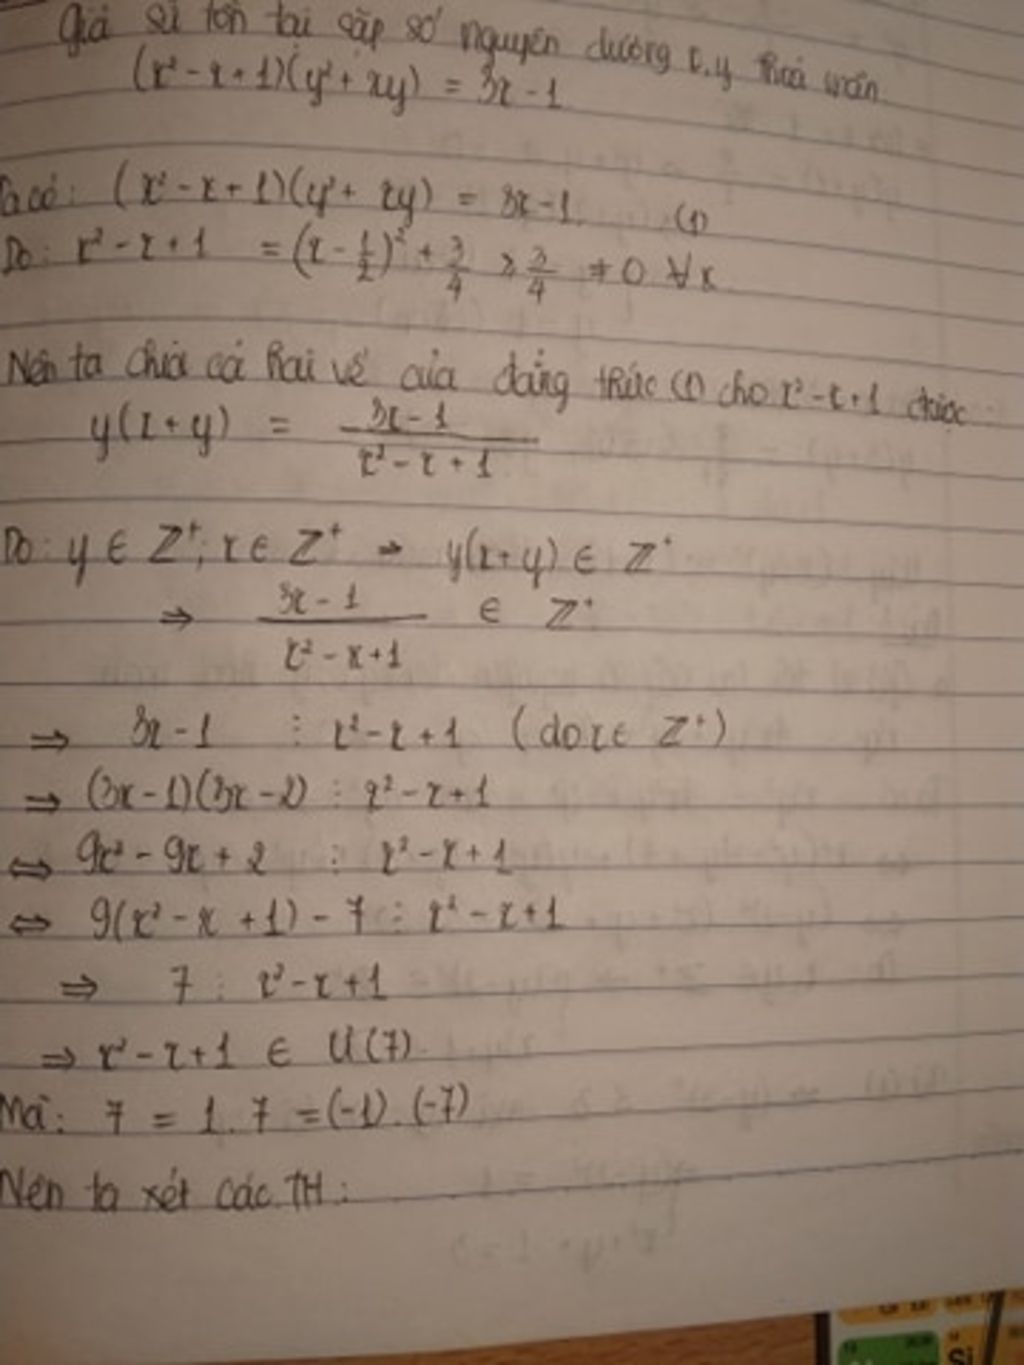 Giả sử tồn tại cặp số nguyên dương x,y thoả mãn
(x² - x + 1)(y² + xy) = 3x - 1
Ta có: (x² - x + 1)(y² + xy) = 3x - 1 (1)
Do: x² - x + 1 = (x - 1/2)² + 3/4 ≥ 3/4 ≠ 0 ∀x
Nên ta chia cả hai vế của đẳng thức (1) cho x² - x + 1 được:
y(x + y) = (3x - 1)/(x² - x + 1)
Do: y ∈ Z⁺; x ∈ Z⁺ → y(x + y) ∈ Z⁺
⇒ (3x - 1)/(x² - x + 1) ∈ Z⁺
⇒ 3x - 1 ⋮ x² - x + 1 (do x ∈ Z⁺)
⇒ (3x - 1)(3x - 2) ⋮ x² - x + 1
⇔ 9x² - 9x + 2 ⋮ x² - x + 1
⇔ 9(x² - x + 1) - 7 ⋮ x² - x + 1
⇒ 7 ⋮ x² - x + 1
⇒ x² - x + 1 ∈ Ư(7)
Mà: 7 = 1.7 = (-1).(-7)
Nên ta xét các TH:
Si